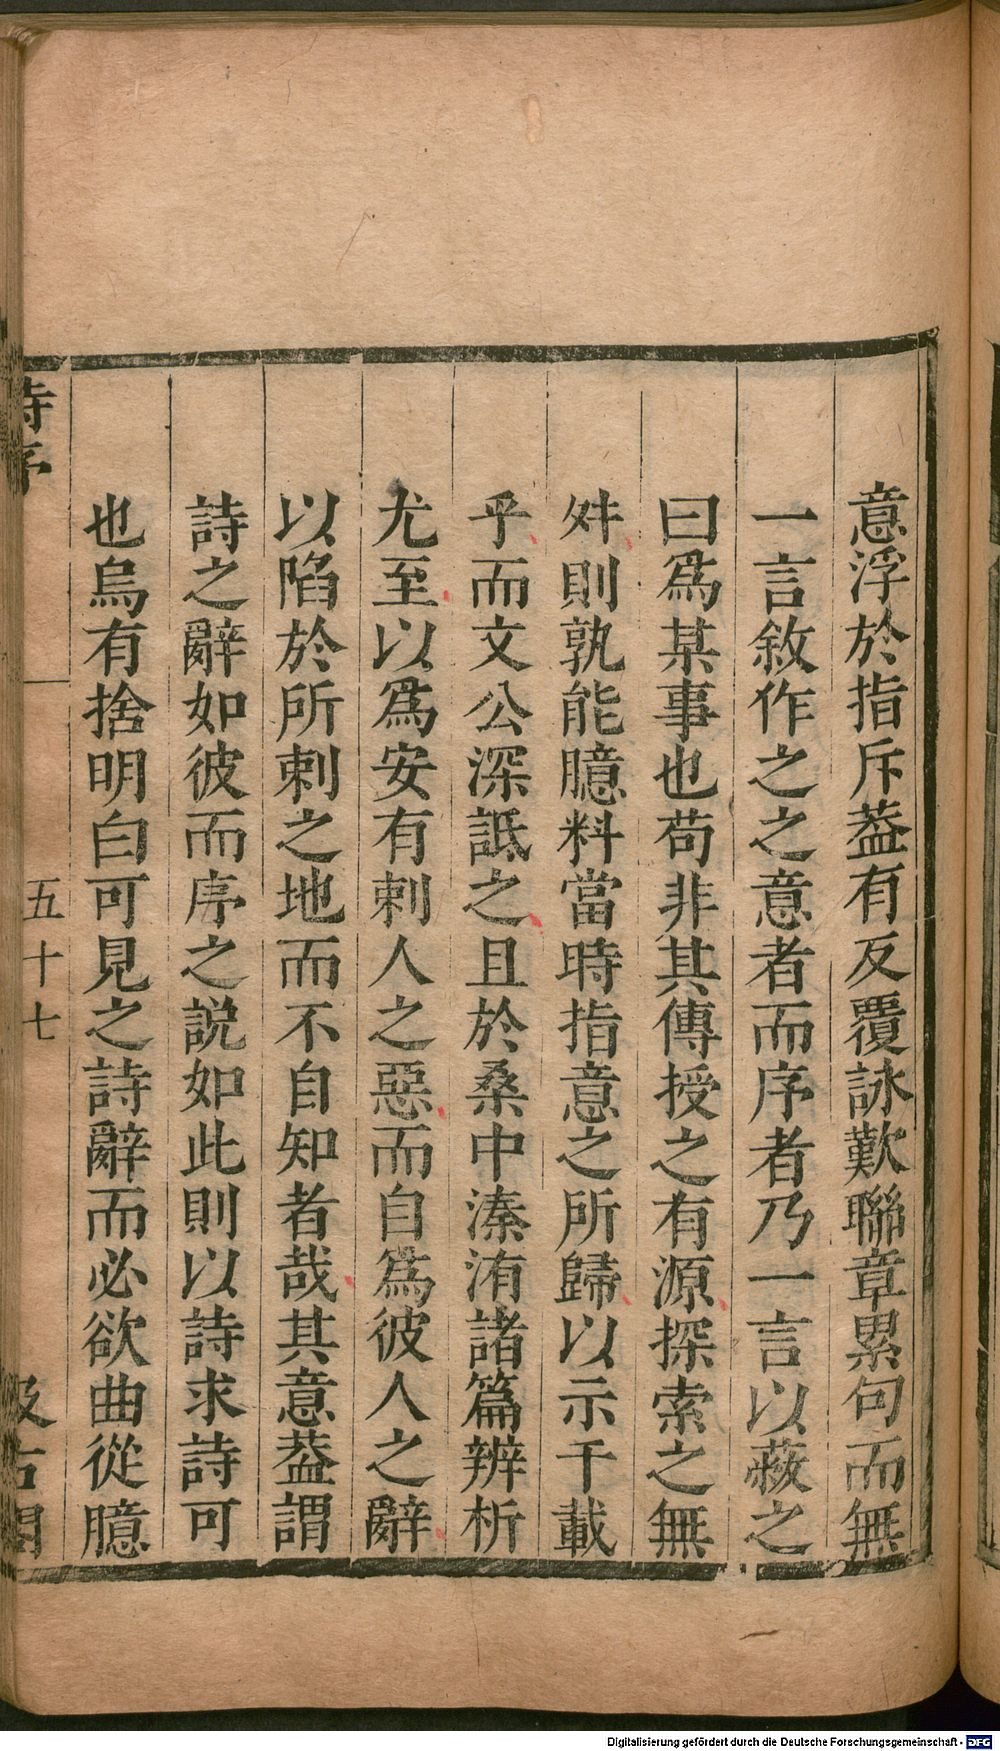 意浮於指斥葢有反覆詠歎聯章累句而無
一言敘作之之意者而序者乃一言以蔽之
曰爲某事也苟非其傳授之有源探索之無
舛則孰能臆料當時指意之所歸以示千載
乎而文公深詆之且於桑中溱洧諸篇辨析
尤至以爲安有刺人之惡而自爲彼人之辭
以陷於所刺之地而不自知者哉其意葢謂
詩之辭如彼而序之説如此則以詩求詩可
也烏有捨明白可見之詩辭而必欲曲從臆
詩序
五十七
汲古閣
Digitalisierung gefördert durch die Deutsche Forschungsgemeinschaft - DFG